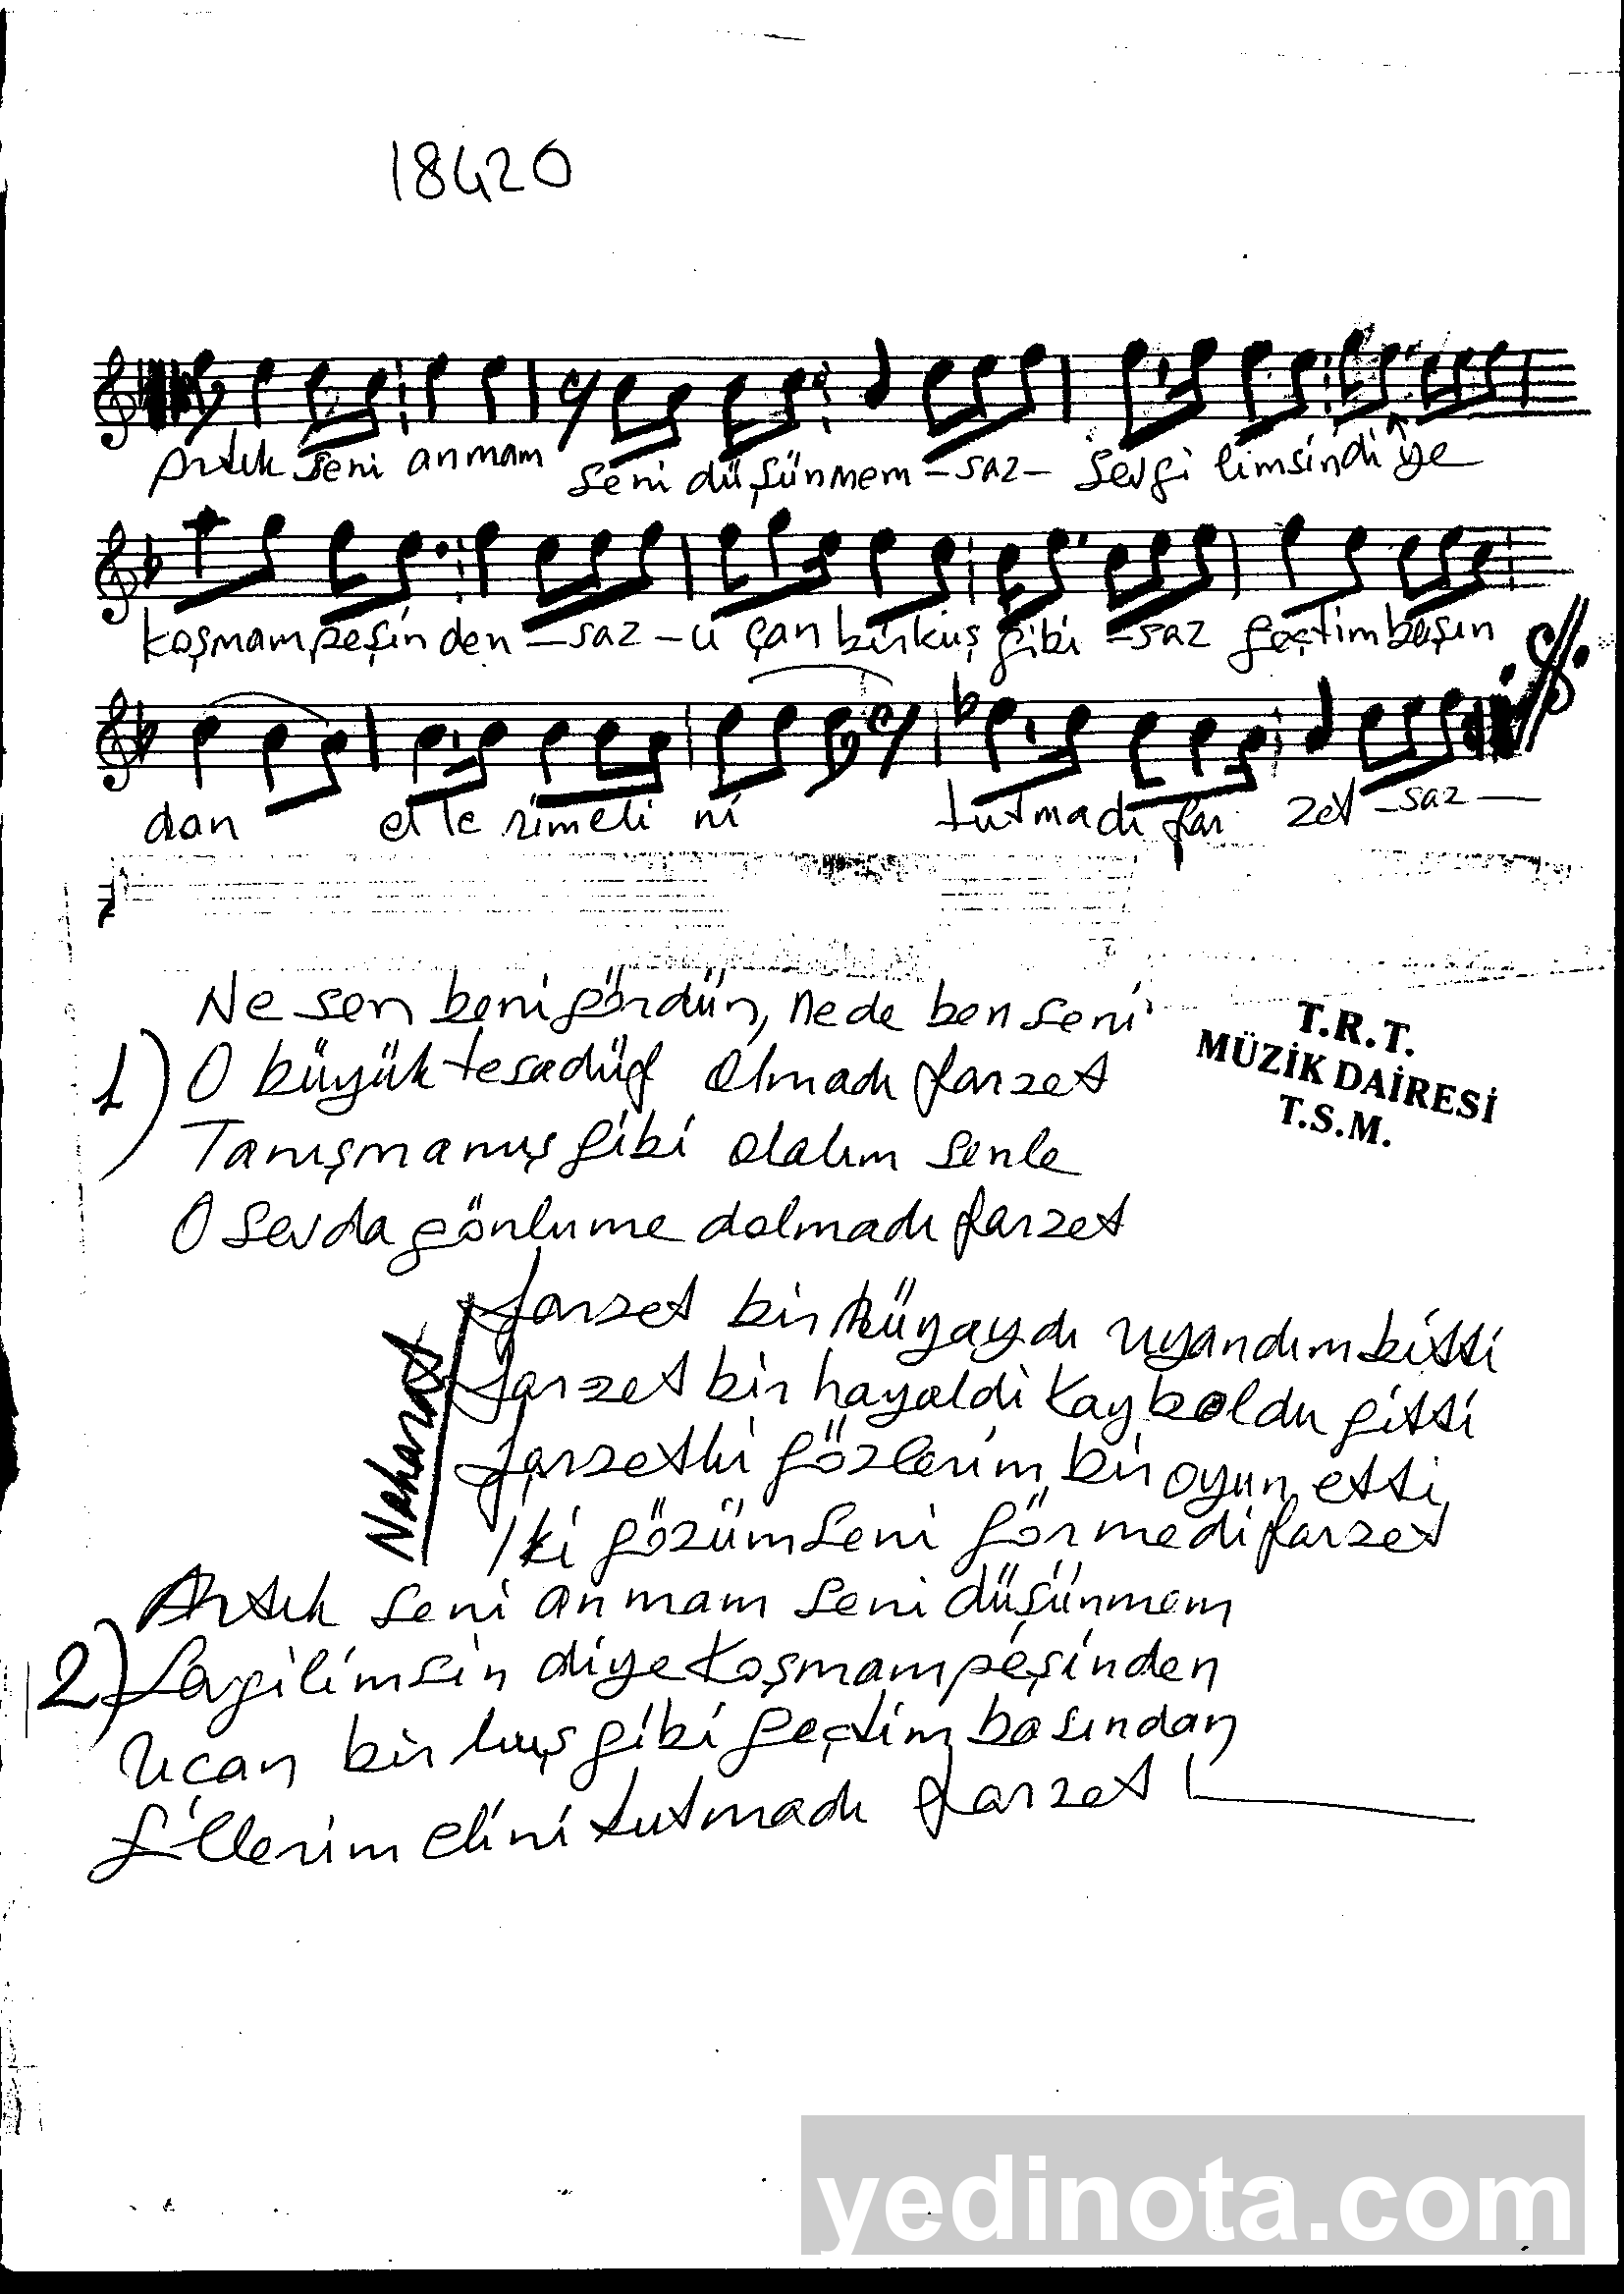 18420
Artık seni anmam seni düşünmem -saz- Sevgi limsindi ye
koşmam peşin den -saz-u çan bir kuş gibi -saz geçtim başın
dan el le rimeli ni tutmadı far zet -saz-
Ne sen beni gördün, nede ben seni
1) O büyük tesadüf olmadı farzet
Tanışmamış gibi olalım senle
O sevda gönlume dolmadı farzet
T.R.T.
MÜZİK DAİRESİ
T.S.M.
Nakarat
farzet bir rüyaydı uyandım bitti
farzet bir hayaldi kayboldu gitti
farzetki gözlerim bir oyun etti
İki gözüm seni görmedi farzet
Artık seni anmam seni düşünmem
2) Sevgilimsin diye koşmam peşinden
Uçan bir kuş gibi geçtim basından
Ellerim elini tutmadı farzet
yedinota.com